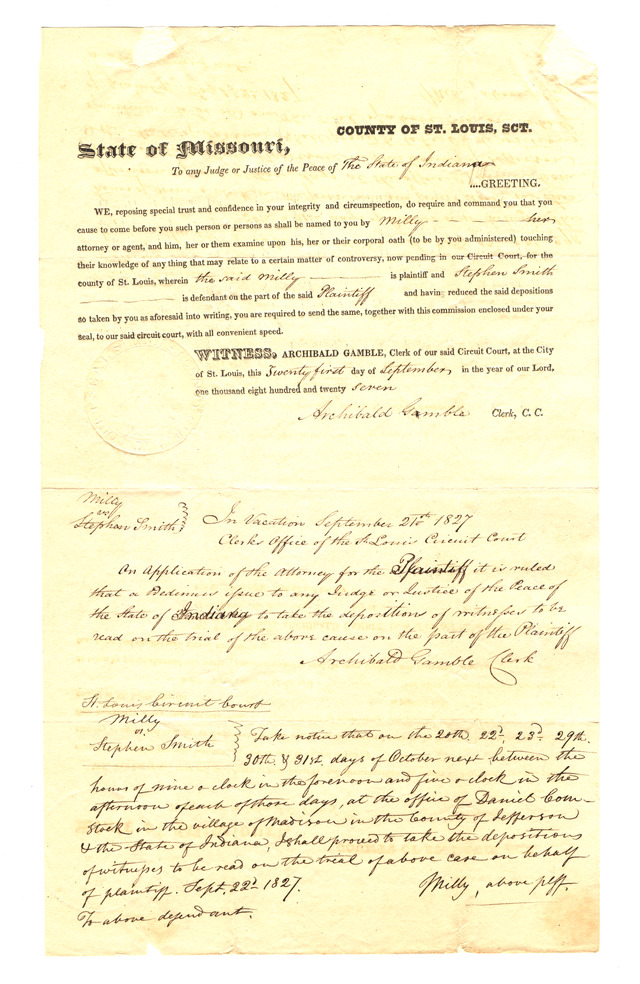 COUNTY OF ST. LOUIS, SCT.
State of Missouri,
To any Judge or Justice of the Peace of The State of Indiana
....GREETING.
WE, reposing special trust and confidence in your integrity and circumspection, do require and command you that you
cause to come before you such person or persons as shall be named to you by Milly her
attorney or agent, and him, her or them examine upon his, her or their corporal oath (to be by you administered) touching
their knowledge of any thing that may relate to a certain matter of controversy, now pending in our Circuit Court, for the
county of St. Louis, wherein the said Milly is plaintiff and Stephen Smith
is defendant on the part of the said Plaintiff and havin reduced the said depositions
so taken by you as aforesaid into writing, you are required to send the same, together with this commission enclosed under your
seal, to our said circuit court, with all convenient speed.
WITNESS, ARCHIBALD GAMBLE, Clerk of our said Circuit Court, at the City
of St. Louis, this Twenty first day of September in the year of our Lord,
one thousand eight hundred and twenty seven
Archibald Gamble Clerk, C. C.
Milly
vs
Stephen Smith
In Vacation September 21st 1827
Clerks Office of the St Louis Circuit Court
On Application of the Attorney for the Plaintiff it is ruled
that a Dedimus issue to any Judge or Justice of the Peace of
the State of Indiana to take the depositions of witnesses to be
read on the trial of the above cause on the part of the Plaintiff
Archibald Gamble Clerk
St. Louis Circuit Court
Milly
vs.
Stephen Smith
Take notice that on the 20th. 22d. 23d. 29th.
30th. & 31st. days of October next between the
hours of nine o clock in the forenoon and five o clock in the
afternoon of each of those days, at the office of Daniel Com-
stock in the village of Madison in the County of Jefferson
& the State of Indiana, I shall proceed to take the depositions
of witnesses to be read on the trial of above case on behalf
of plaintiff. Sept. 22d 1827.
Milly, above plff.
To above defendant.